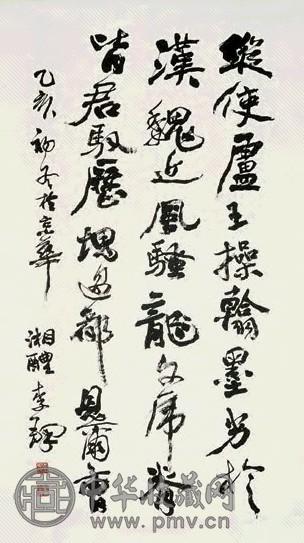 縱使盧王操翰墨劣於
漢魏近風騷龍文虎脊
皆君馭歷塊過都見爾曹
乙亥初冬於京華
湘醴李鐸
中华收藏网
www.pmv.cn